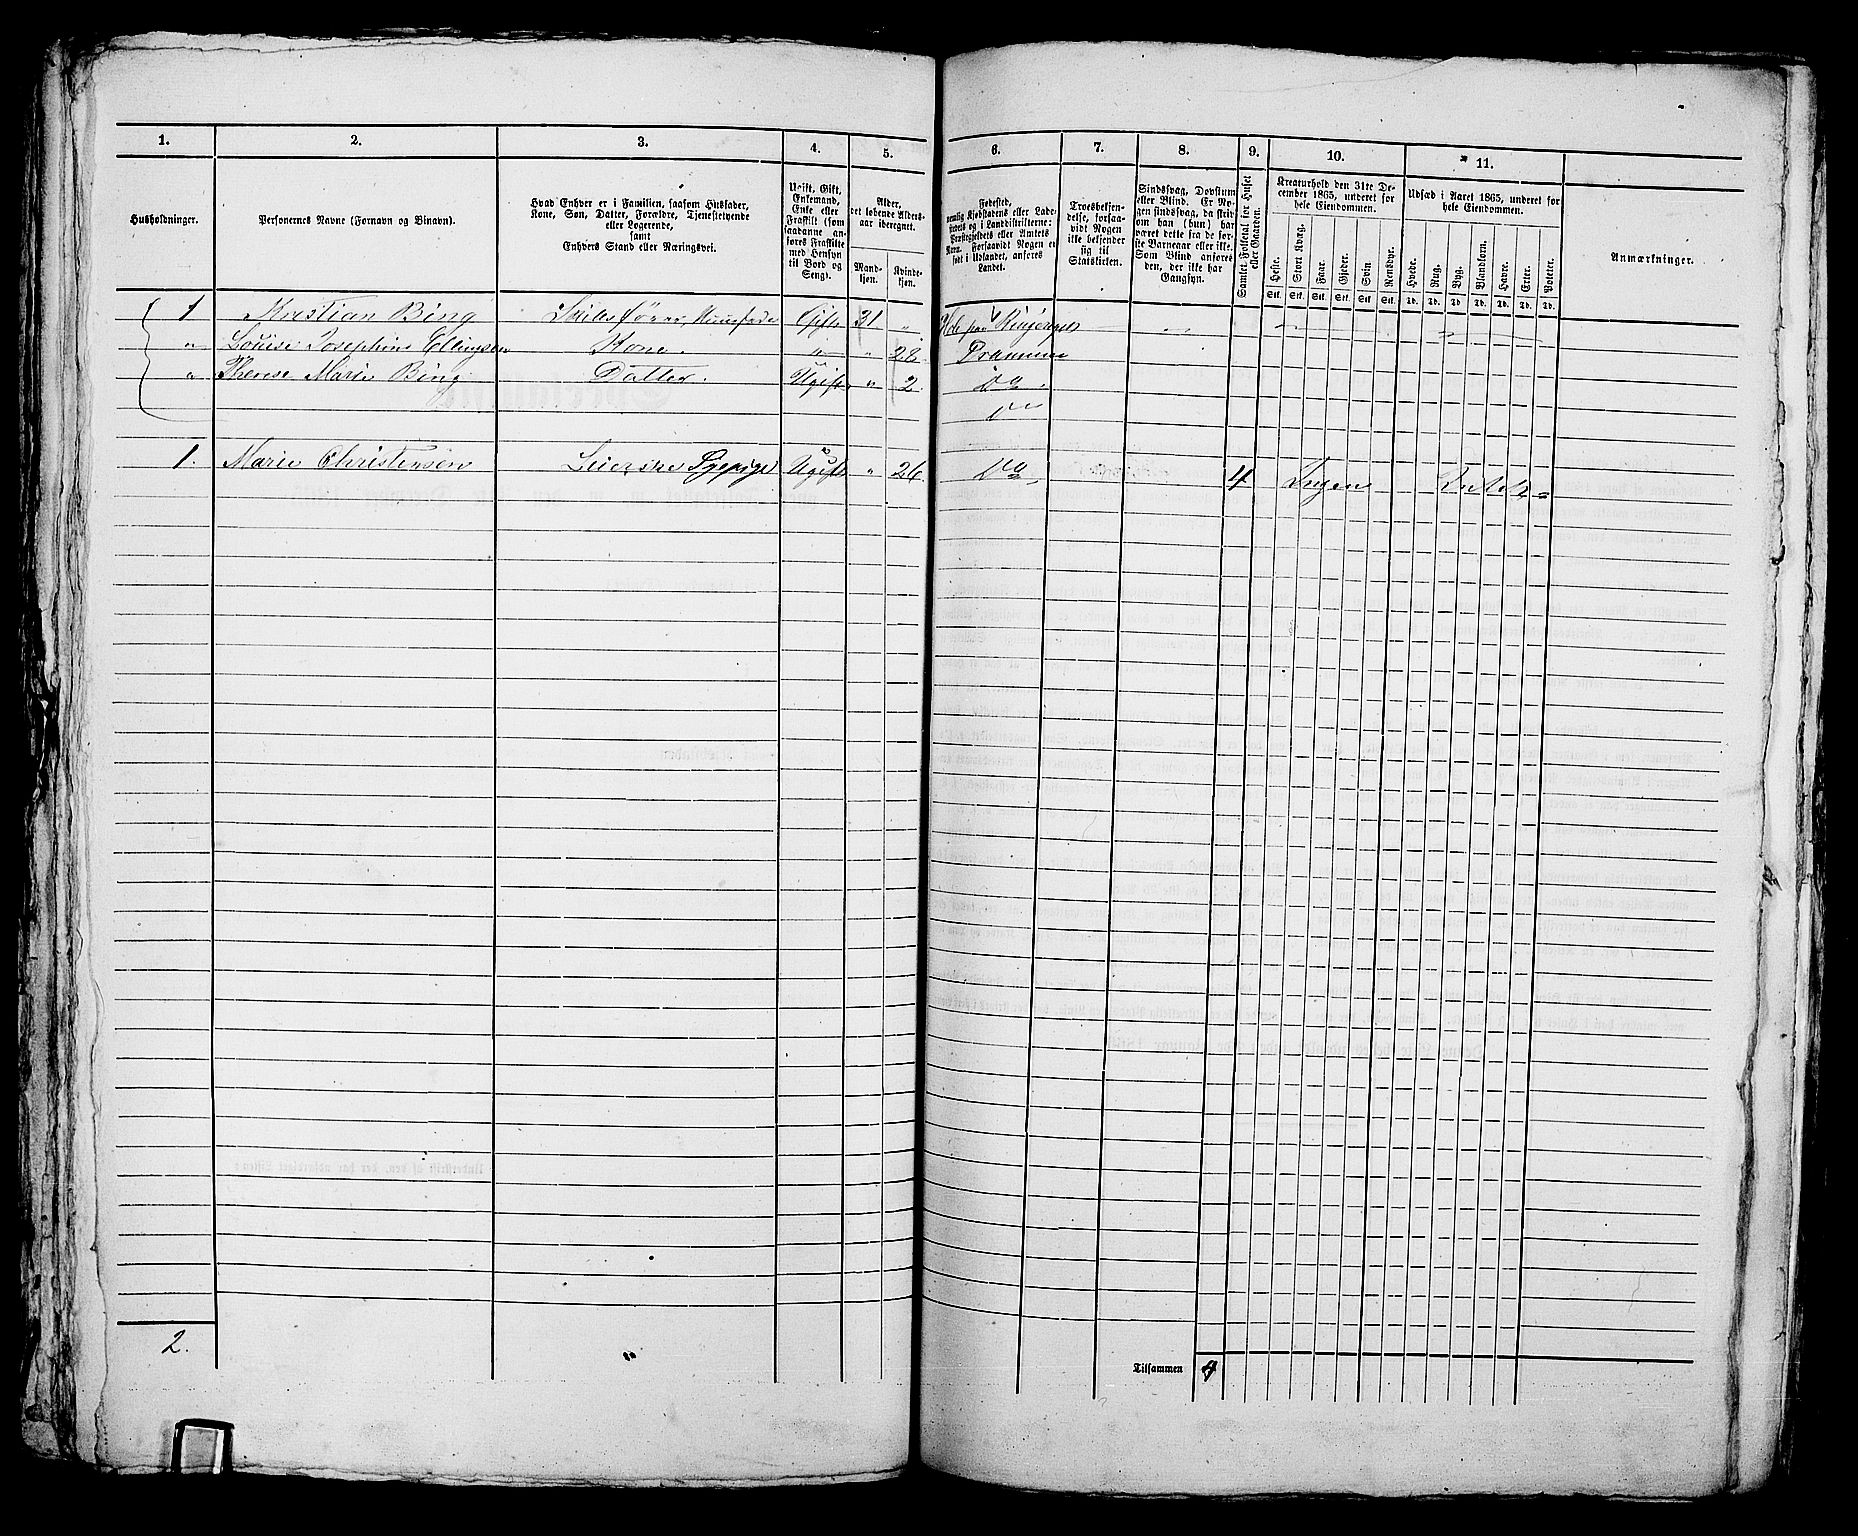 1. 2. 3. 4. 5. 6. 7. 8. 9. 10. 11.
Husholdninger.
Personernes Navne (Fornavn og Binavn).
Hvad Enhver er i Familien, saasom Husfader,
Kone, Søn, Datter, Forældre, Tjenestetyende
eller Logerende,
samt
Enhvers Stand eller Næringsvei.
Ugift, Gift,
Enkemand,
Enke eller
Fraskilt (som
saadanne an-
føres Fraskilte
med Hensyn
til Bord og
Seng).
Alder,
det løbende Alders-
aar iberegnet.
Mand-
kjøn.
Kvinde-
kjøn.
Fødested,
nemlig Kjøbstadens eller Lade-
stedets og i Landdistrikterne:
Præstegjeldets eller Amtets
Navn. Forsaavidt Nogen er
født i Udlandet, anføres
Landet.
Troesbekjen-
delse, forsaa-
vidt Nogen
ikke bekjender
sig til
Statskirken.
Sindssvag, Døvstum
eller Blind. Er No-
gen sindssvag, da skriv
om han (hun) har
været dette fra de før-
ste Barneaar eller ikke.
Som Blind anføres
den, der ikke har
Gangsyn.
Samlet Folketal for Huset
eller Gaarden.
Kreaturhold den 31te De-
cember 1865, underet for
hele Eiendommen.
Heste. Stort Kvæg. Faar. Gjeder. Svin Rensdyr.
Stk. Stk. Stk. Stk. Stk. Stk.
Udsæd i Aaret 1865, underet for
hele Eiendommen.
Hvede. Rug. Byg. Blandkorn. Havre. Erter. Poteter.
Td. Td. Td Td. Td. Td. Td.
Anmærkninger.
1 Kristian Bing Gift 31 "
" Louise Josephine Ellingsen Kone. " " 28 Drammen
" Therese Marie Bing Datter. Ugift " 2 Do
Do
1. Marie Christensen Ugift " 26 Do 4 Ingen
2. "
Tilsammen 4